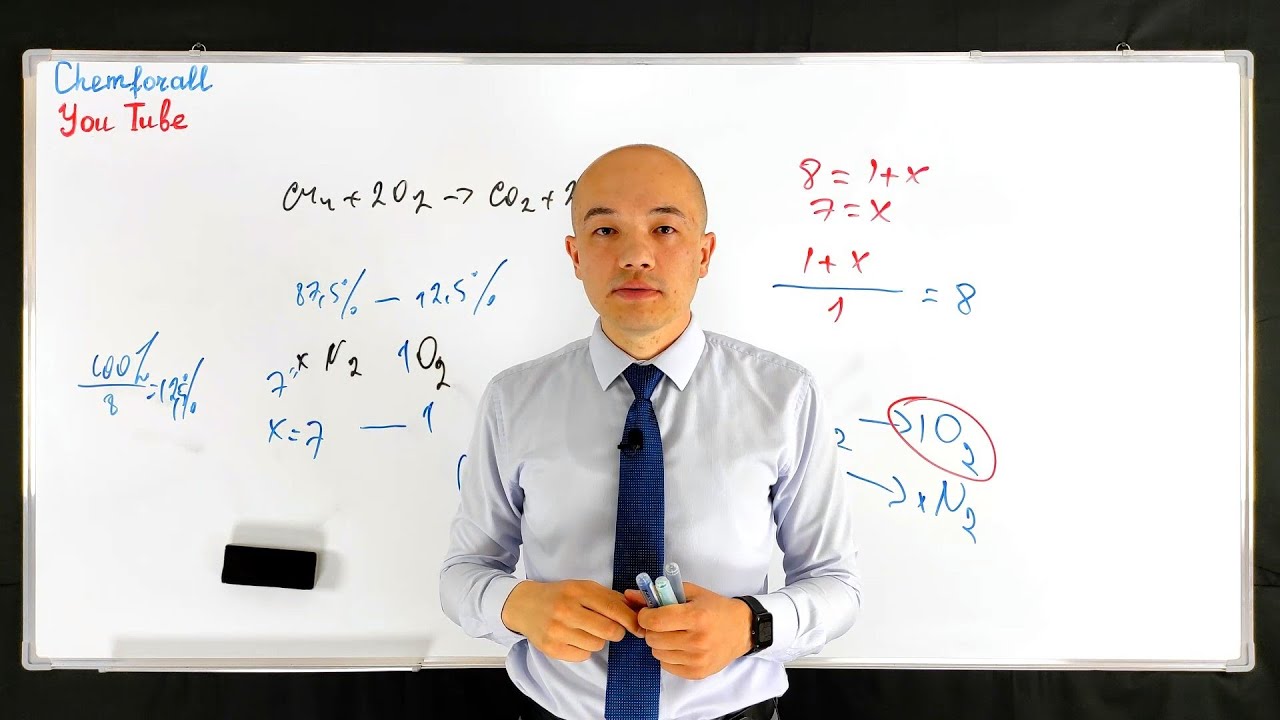 Chemforall
You Tube
CH₄ + 2O₂ → CO₂ + 2
87,5% — 12,5%
100%
8
=12,5%
7=x N₂ 1O₂
x=7 — 1
8 = 1+x
7 = x
1+x
1
= 8
2 → 1O₂
→ xN₂